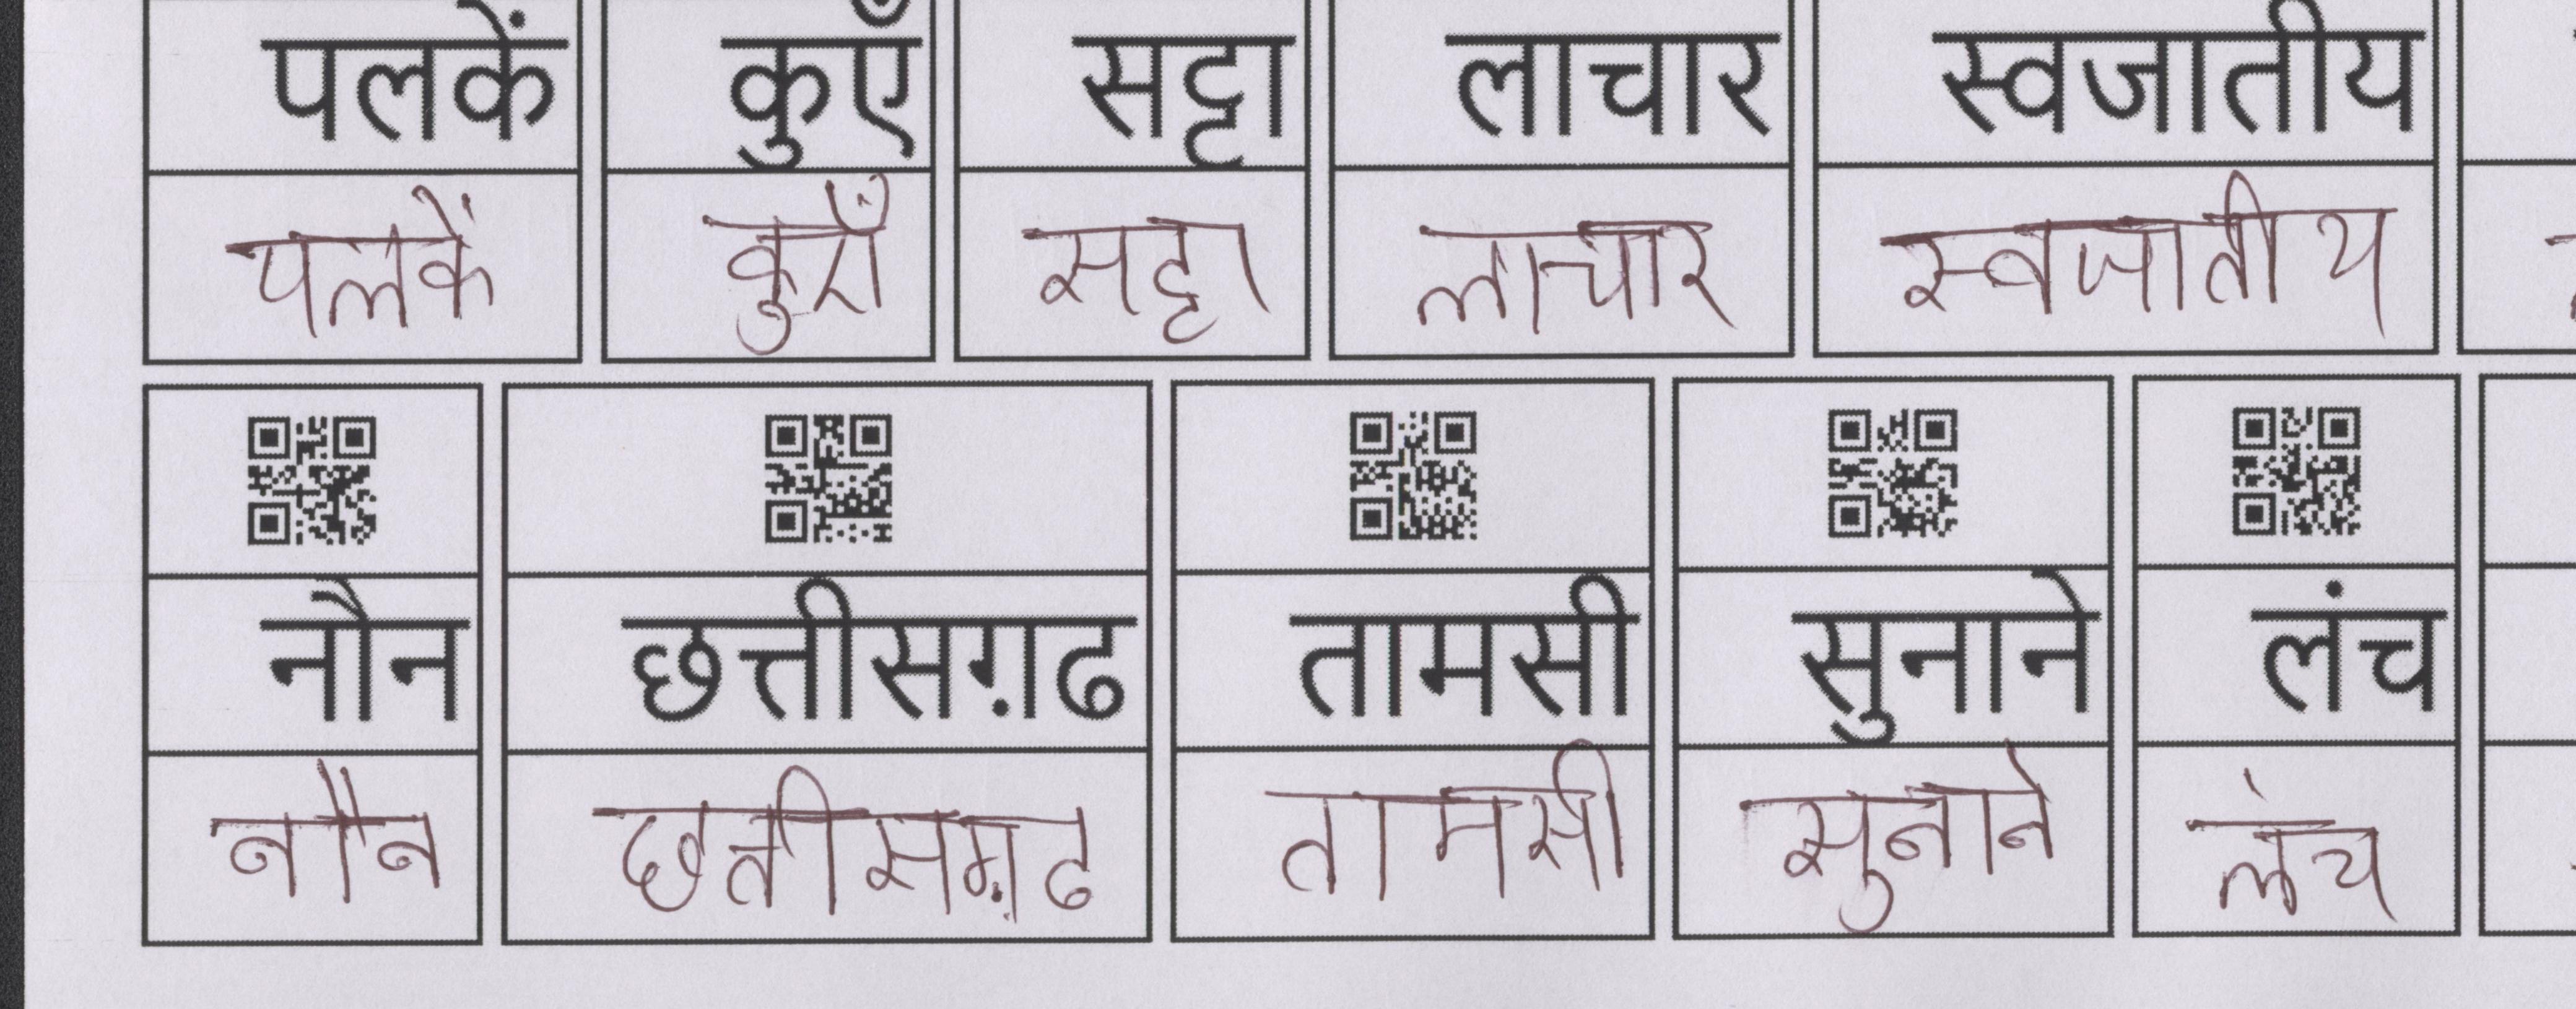 पलकें कुएँ सट्टा लाचार स्वजातीय
पलकें कुएँ सट्टा लाचार स्वजातीय
नौन छत्तीसग़ढ तामसी सुनाने लंच
नौन छत्तीसग़ढ तामसी सुनाने लंच